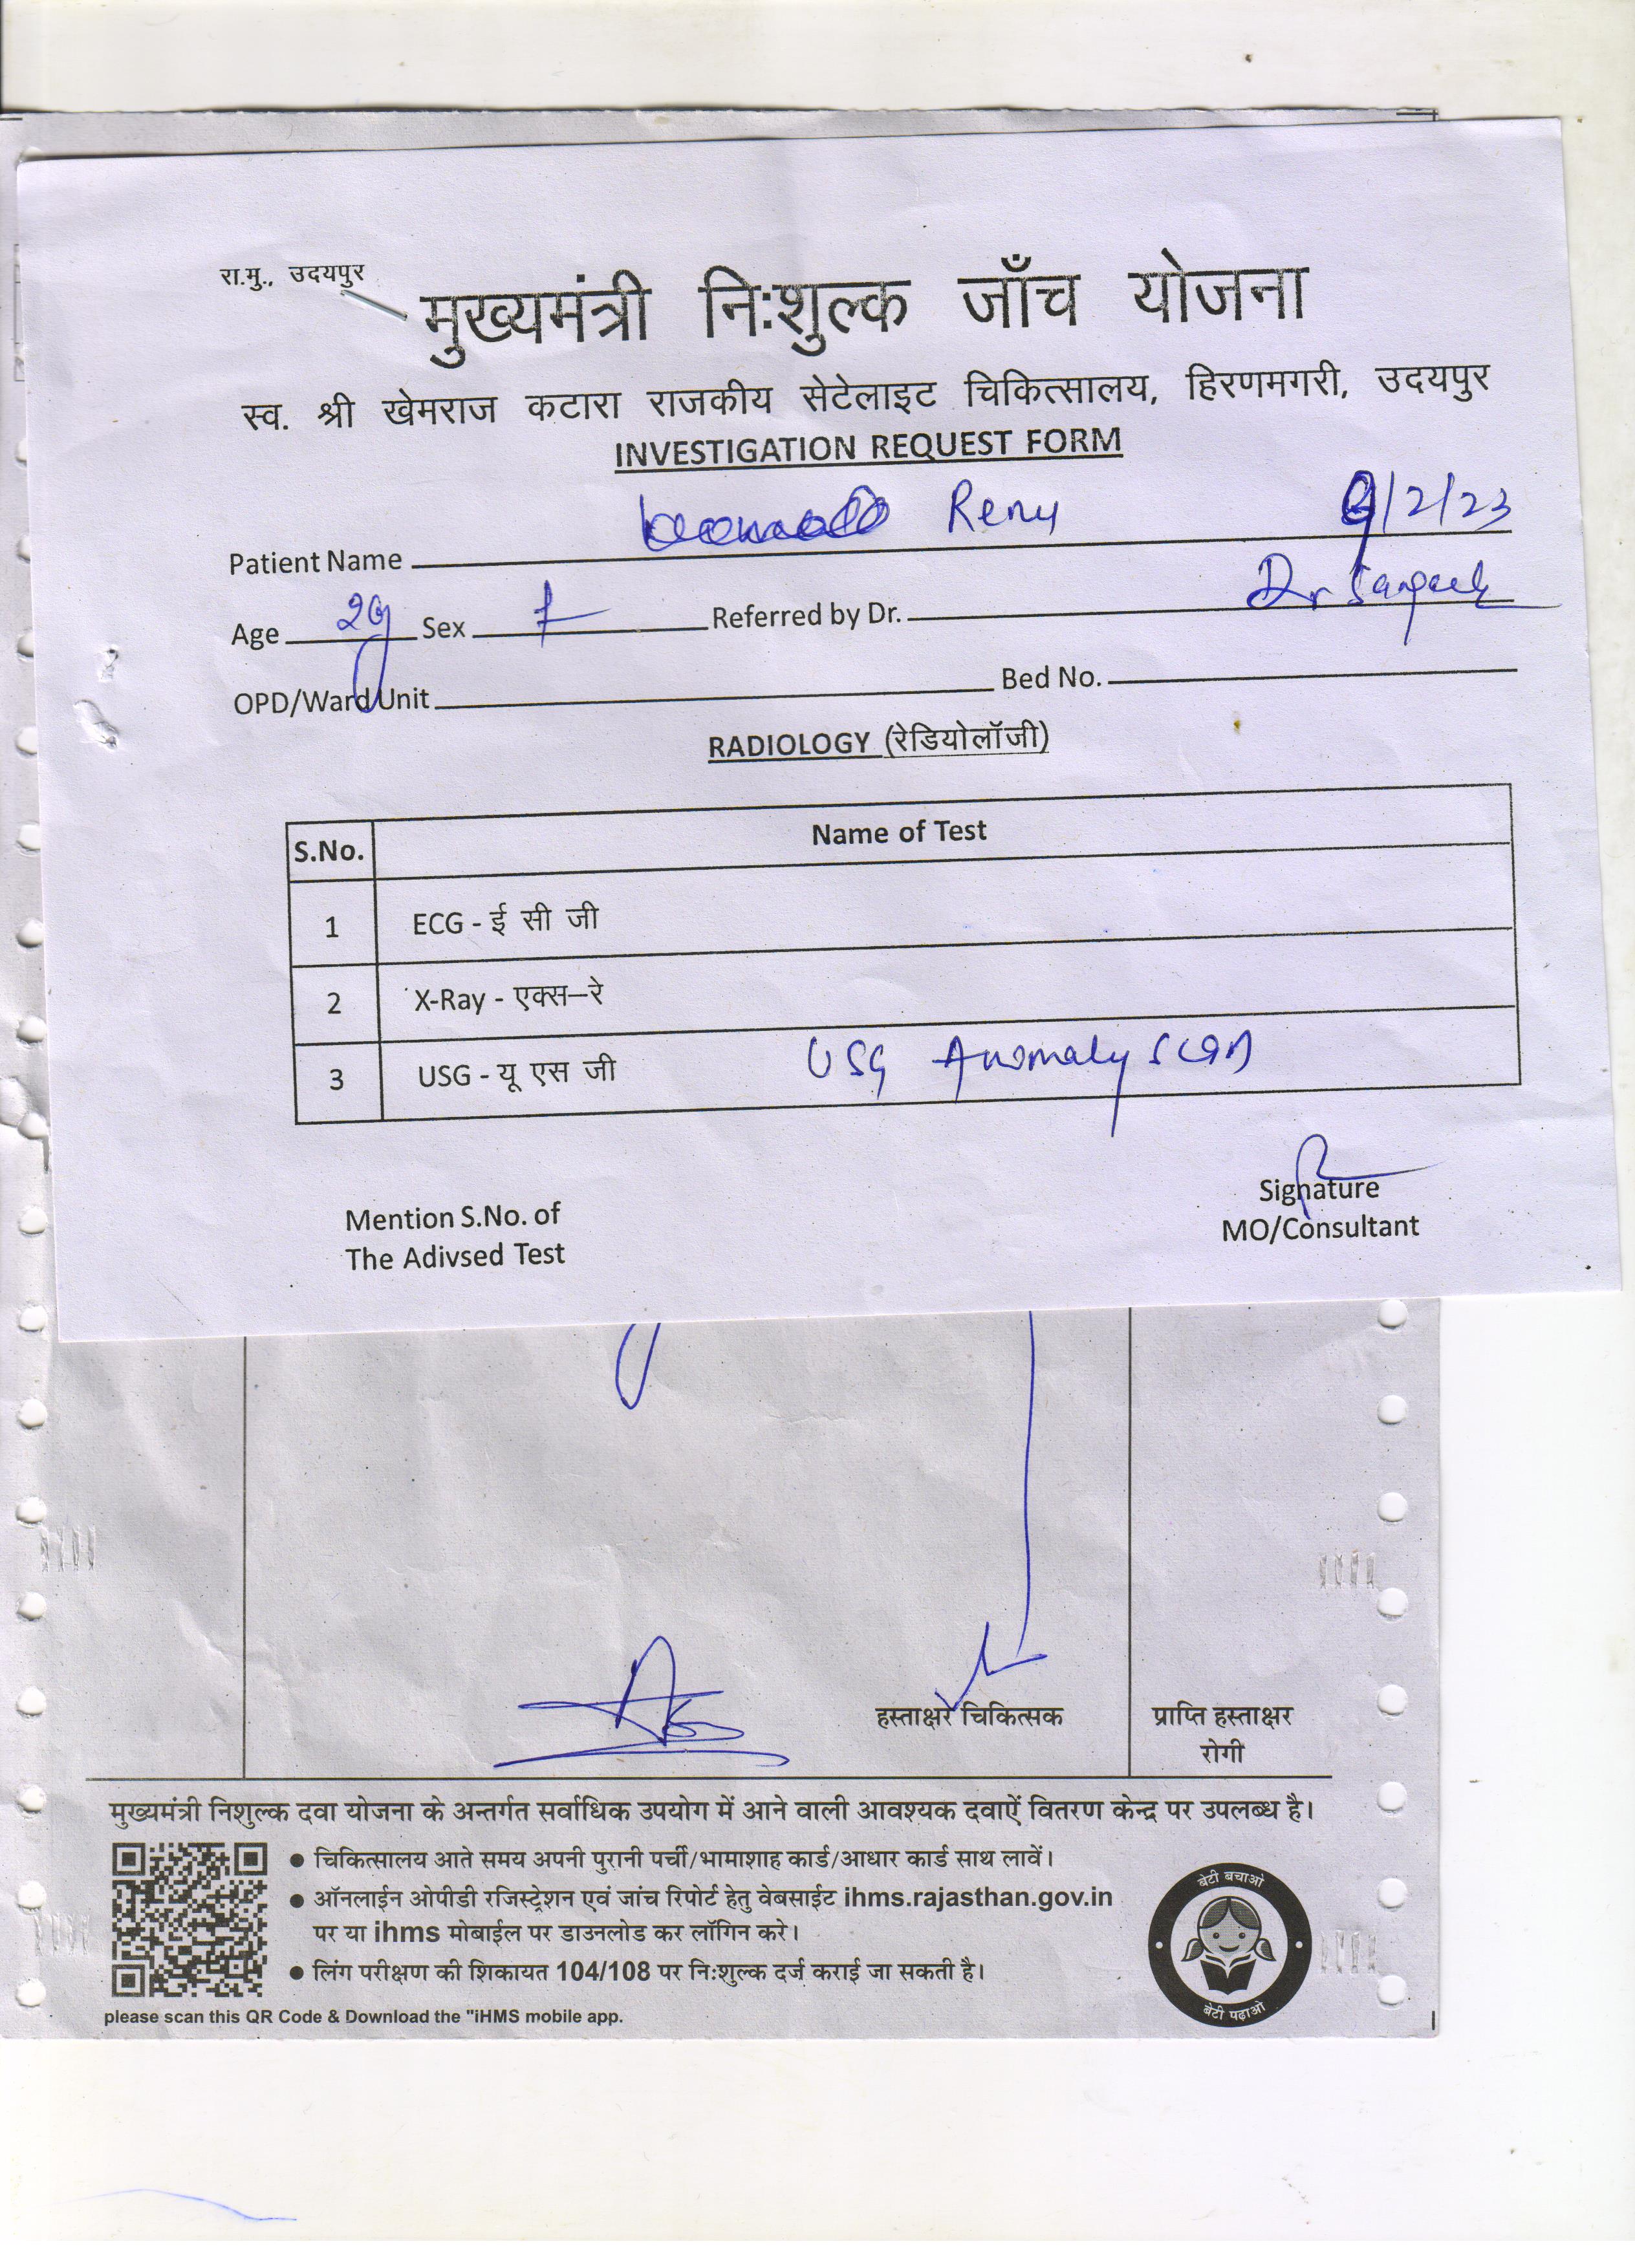 रा.मु., उदयपुर
मुख्यमंत्री निःशुल्क जाँच योजना
स्व. श्री खेमराज कटारा राजकीय सेटेलाइट चिकित्सालय, हिरणमगरी, उदयपुर
INVESTIGATION REQUEST FORM
Patient Name Renu 9/2/23
Age Sex f Referred by Dr. Dr
OPD/Ward Unit Bed No.
RADIOLOGY (रेडियोलॉजी)
S.No. Name of Test
1 ECG - ई सी जी
2 X-Ray - एक्स–रे
3 USG - यू एस जी USG Anomaly scan
Mention S.No. of
The Adivsed Test
Signature
MO/Consultant
हस्ताक्षर चिकित्सक
प्राप्ति हस्ताक्षर
रोगी
मुख्यमंत्री निशुल्क दवा योजना के अन्तर्गत सर्वाधिक उपयोग में आने वाली आवश्यक दवाऐं वितरण केन्द्र पर उपलब्ध है।
● चिकित्सालय आते समय अपनी पुरानी पर्ची/भामाशाह कार्ड/आधार कार्ड साथ लावें।
● ऑनलाईन ओपीडी रजिस्ट्रेशन एवं जांच रिपोर्ट हेतु वेबसाईट ihms.rajasthan.gov.in
पर या ihms मोबाईल पर डाउनलोड कर लॉगिन करे।
● लिंग परीक्षण की शिकायत 104/108 पर निःशुल्क दर्ज कराई जा सकती है।
please scan this QR Code & Download the "iHMS mobile app.
बेटी बचाओ
बेटी पढ़ाओ